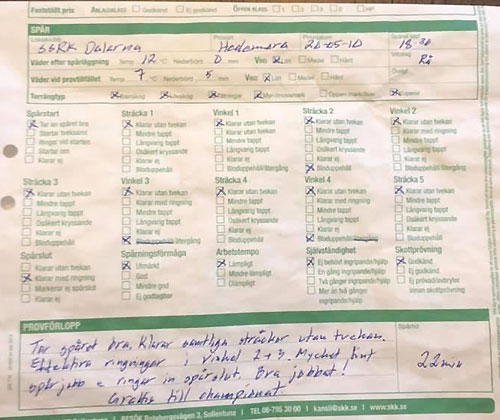 Fastställt pris ANLAGSKLASS Godkänd Ej godkänd ÖPPEN KLASS 1 2 3 0 HP
SPÅR
SSRK Dalarna Hedemora 20-05-10 18.30
Väder efter spårläggning Temp 12 °C Nederbörd 0 mm Vind Lätt Medel Hård
Väder vid provtillfället Temp 7 °C Nederbörd 5 mm Vind Lätt Medel Hård
Terrängtyp Barrskog Lövskog Myr/mossmark Öppen mark/åker
Spårstart
Tar an spåret bra
Startar tveksamt
Ringar vid starten
Startar om
Klarar ej
Sträcka 1
Klarar utan tvekan
Mindre tappt
Långvarig tappt
Osäkert kryssande
Klarar ej
Bloduppehåll
Vinkel 1
Klarar utan tvekan
Klarar med ringning
Mindre tappt
Långvarig tappt
Klarar ej
Bloduppehåll/återgång
Sträcka 2
Klarar utan tvekan
Mindre tappt
Långvarig tappt
Osäkert kryssande
Klarar ej
Bloduppehåll
Vinkel 2
Klarar utan tvekan
Klarar med ringning
Mindre tappt
Långvarig tappt
Klarar ej
Bloduppehåll/återgång
Sträcka 3
Klarar utan tvekan
Mindre tappt
Långvarig tappt
Osäkert kryssande
Klarar ej
Bloduppehåll
Vinkel 3
Klarar utan tvekan
Klarar med ringning
Mindre tappt
Långvarig tappt
Klarar ej
Bloduppehåll/återgång
Sträcka 4
Klarar utan tvekan
Mindre tappt
Långvarig tappt
Osäkert kryssande
Klarar ej
Bloduppehåll
Vinkel 4
Klarar utan tvekan
Klarar med ringning
Mindre tappt
Långvarig tappt
Klarar ej
Bloduppehåll/återgång
Sträcka 5
Klarar utan tvekan
Mindre tappt
Långvarig tappt
Osäkert kryssande
Klarar ej
Bloduppehåll
Spårslut
Klarar utan tvekan
Klarar med ringning
Markerar ej spårslut
Klarar ej
Spårningsförmåga
Utmärkt
God
Mindre god
Ej godtagbar
Arbetstempo
Lämpligt
Mindre lämpligt
Olämpligt
Självständighet
Ej behövt ingripande/hjälp
En gång ingripande/hjälp
Två gånger ingripande/hjälp
Mer än två gånger
ingripande/hjälp
Skottprövning
Godkänd
Ej godkänd
Ej prövad/avbryter
innan skottprövning
PROVFÖRLOPP
Tar spåret bra. Klarar samtliga sträckor utan tvekan.
Effektiva ringningar i vinkel 2+3. Mycket fint
spårjobb o ringar in spårslut. Bra jobbat!
Grattis till championat
Spårtid
22 min
BESÖK Rotebergsvägen 3, Sollentuna | TEL 08-795 30 00 | kansli@skk.se | www.skk.se